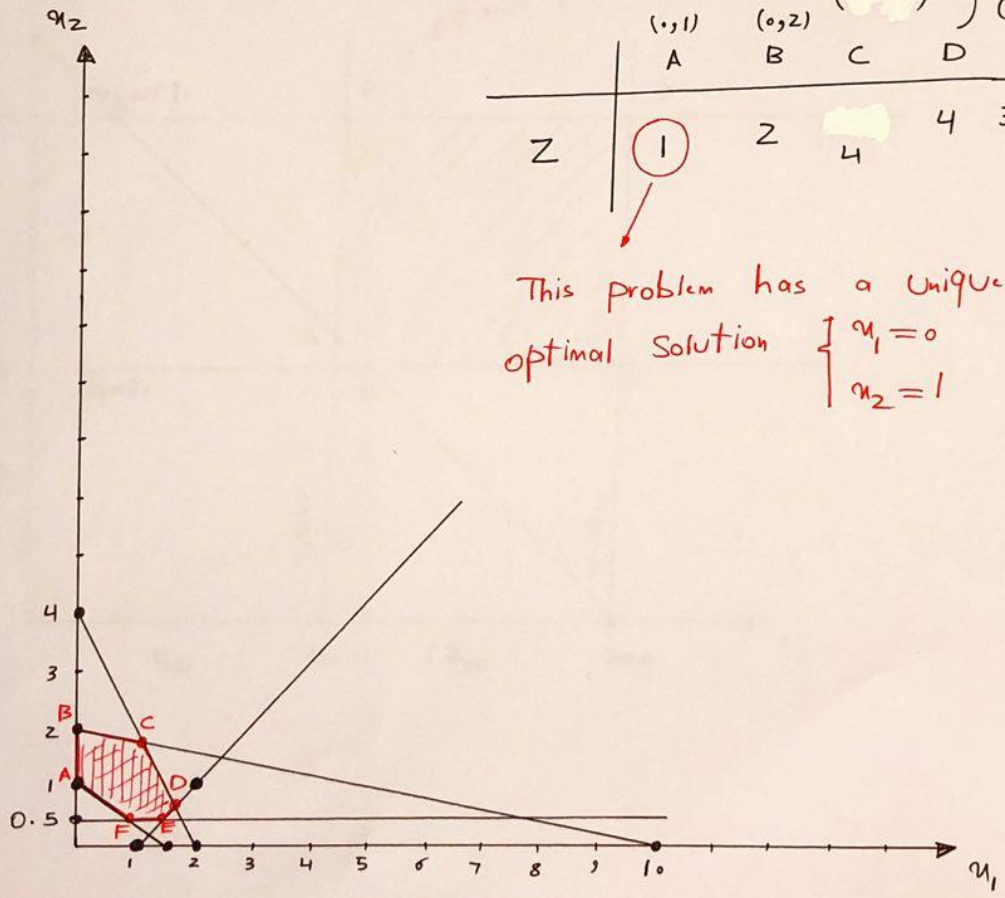 (0,1) (0,2)
A B C D
Z 1 2 4 4
This problem has a unique
optimal solution { x₁ = 0
x₂ = 1
x₂
4
3
B
2 C
1 A D
0.5 F E
1 2 3 4 5 6 7 8 9 10
x₁